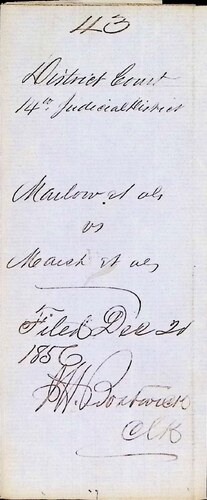 43
District Court
14th Judicial District
Marlow et als
vs
March et als
Filed Dec 2d
1856
Bostwick
Clk